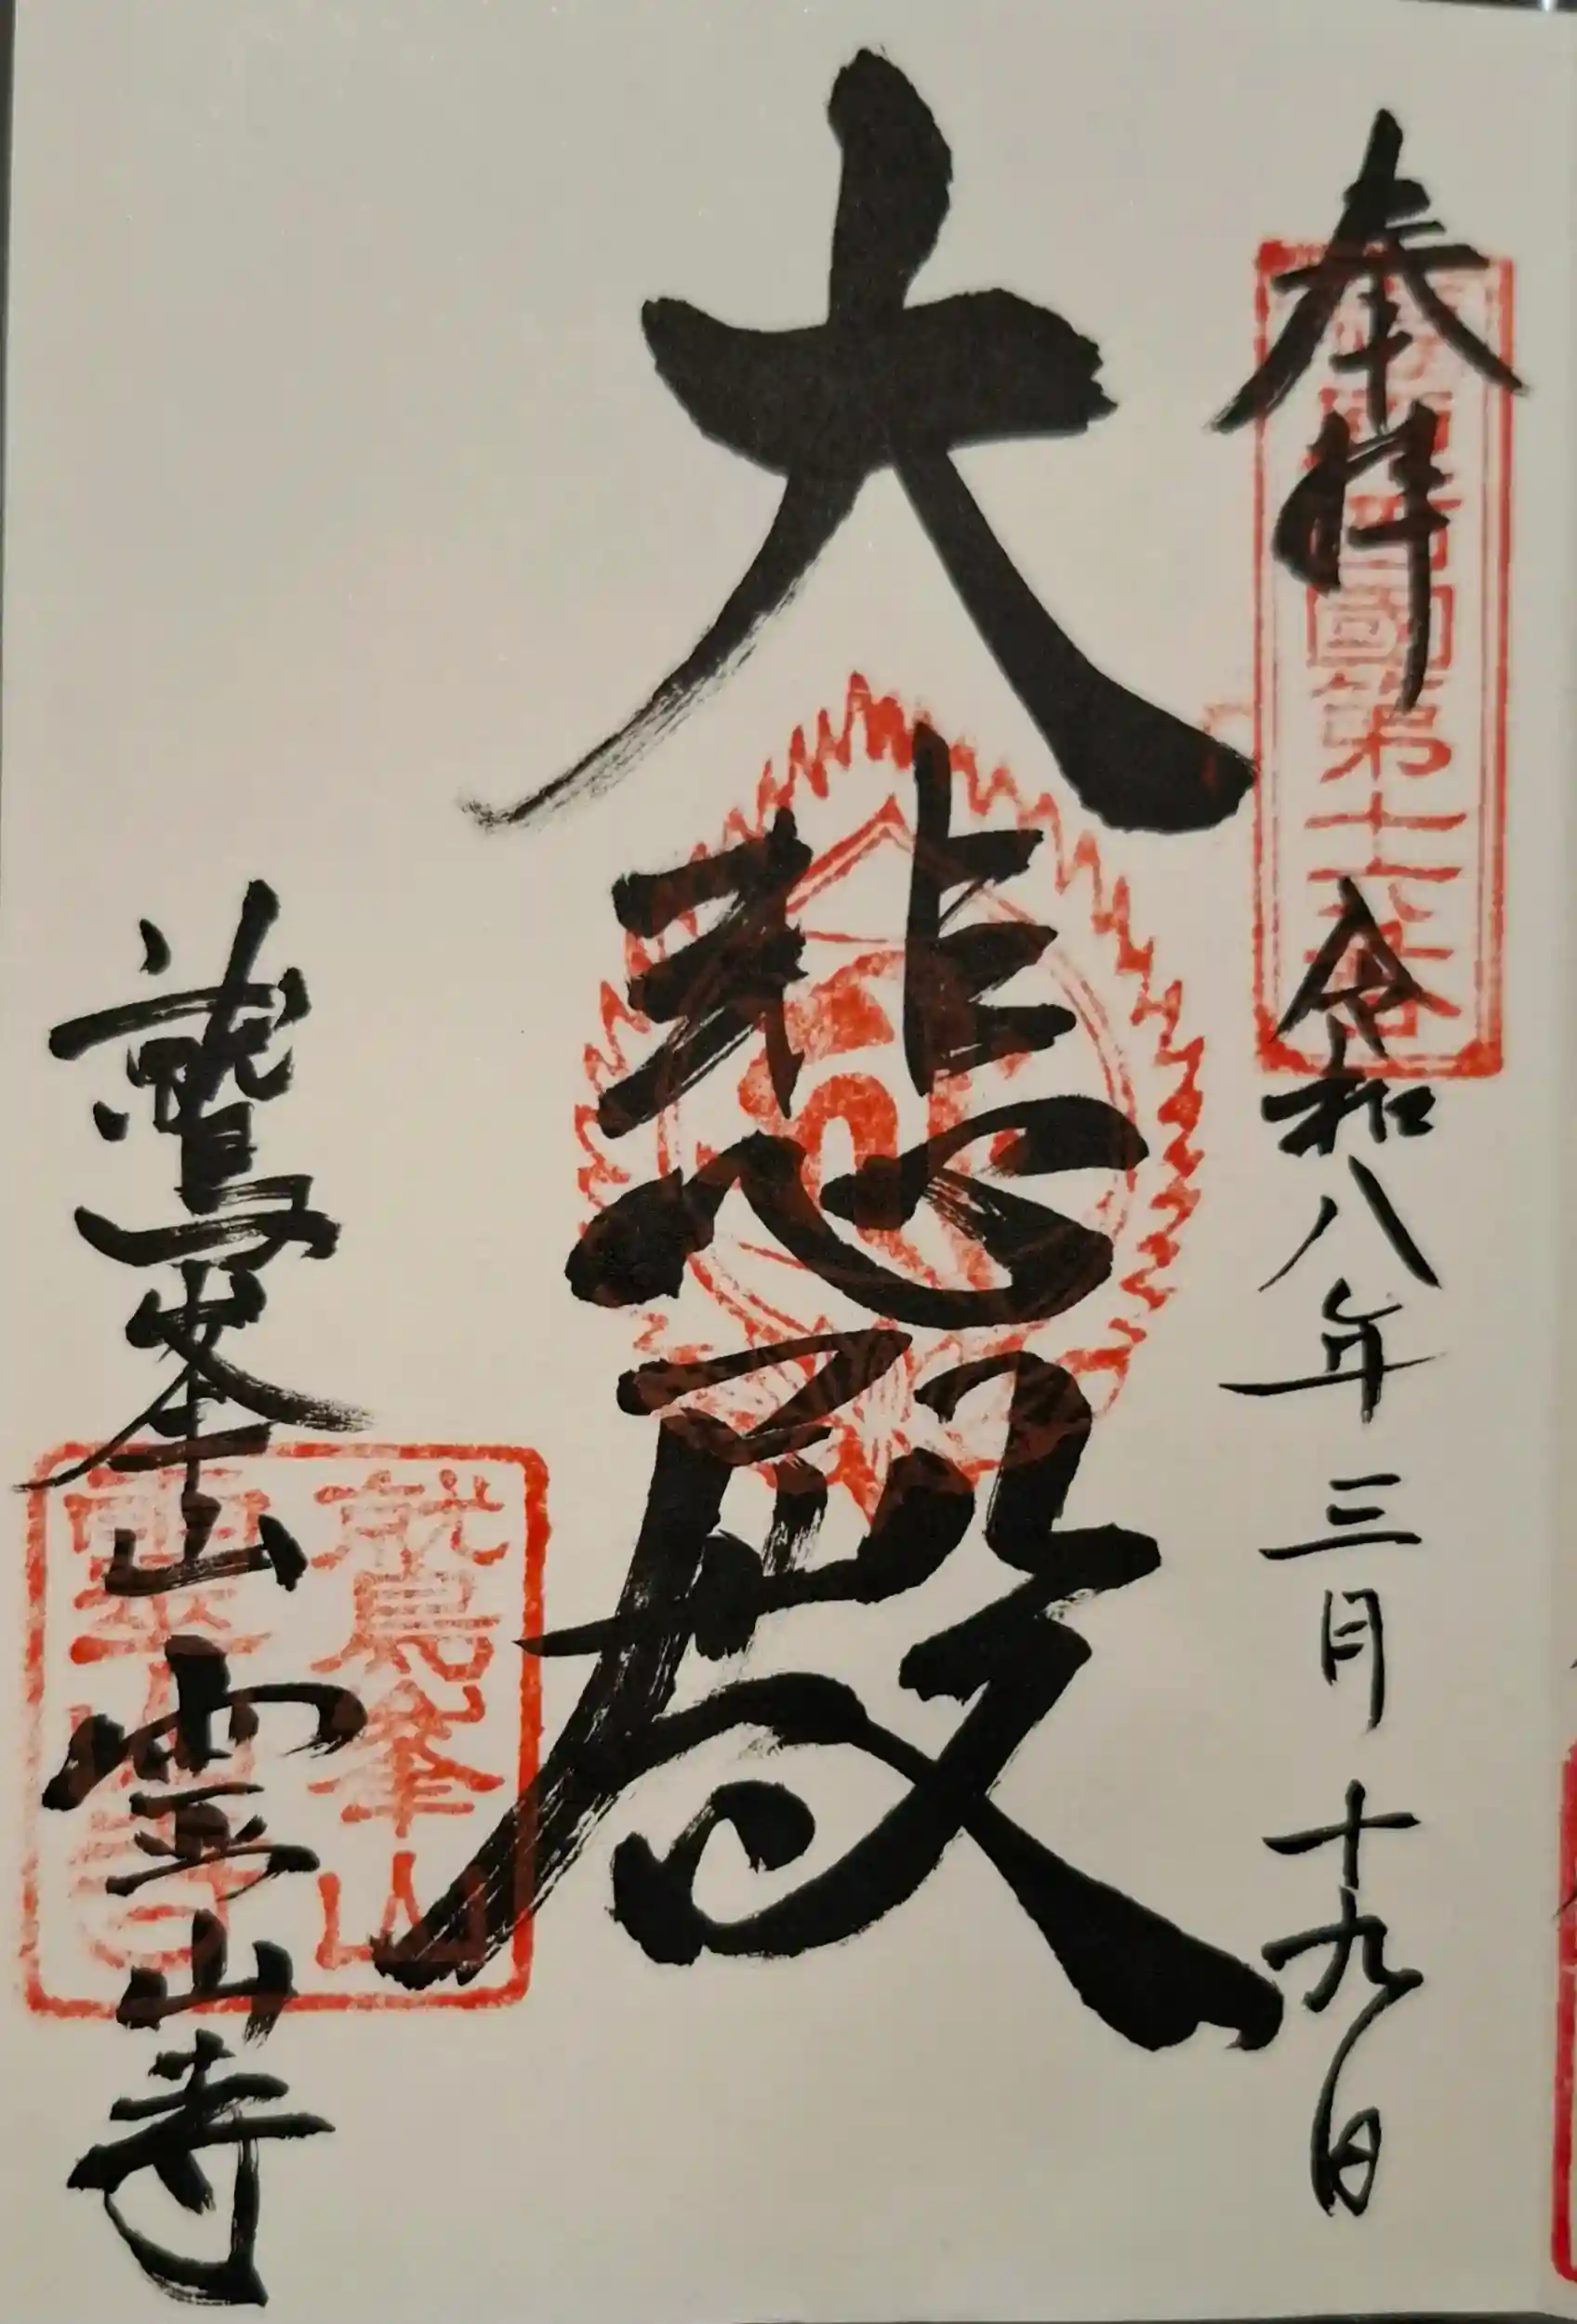 奉拝
西國第十六番
令和八年三月十九日
大悲殿
鷲峯山 霊山寺
鷲峯山